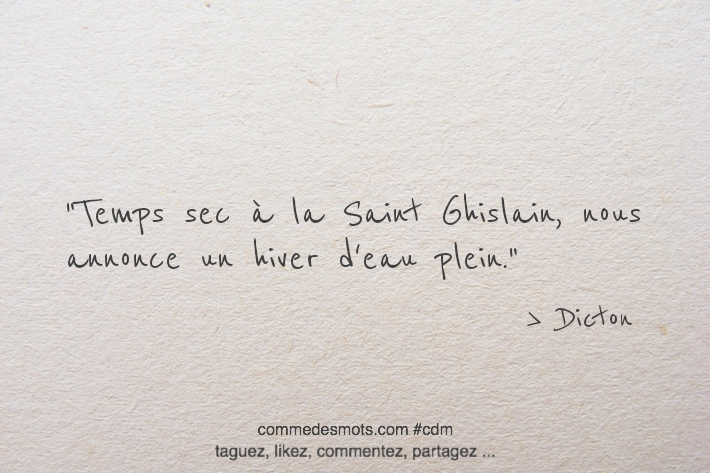 "Temps sec à la Saint Ghislain, nous
annonce un hiver d'eau plein."
> Dicton
commedesmots.com #cdm
taguez, likez, commentez, partagez ...